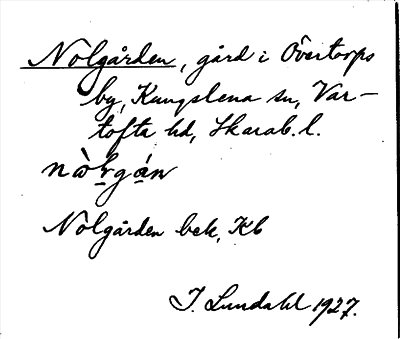 Nolgården, gård i Övertorps
by, Kungslena sn, Var-
tofta hd, Skarab. l.
Nolgården bek, Kb
I. Lundahl 1927.